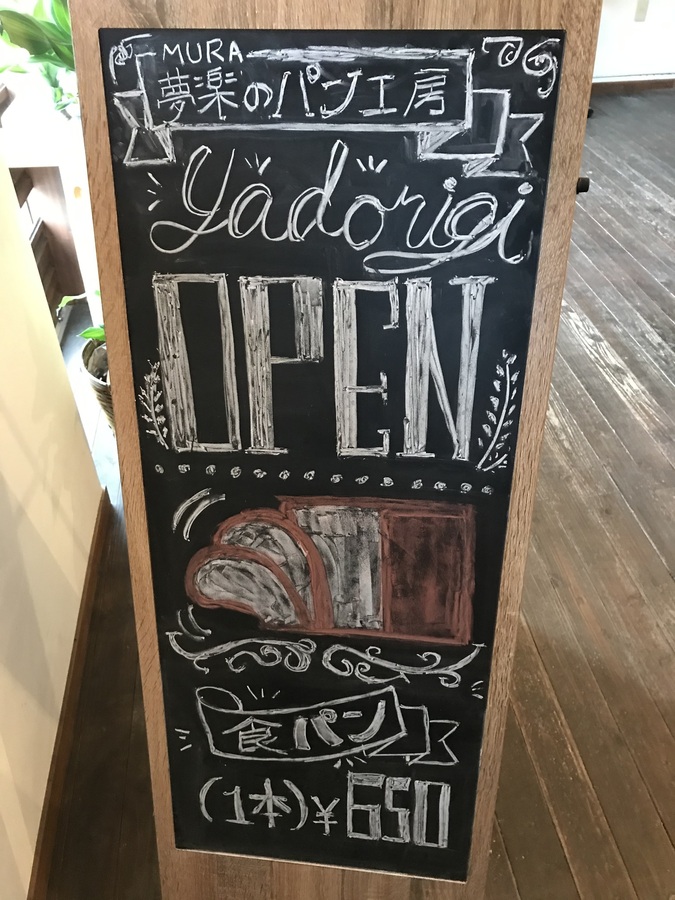 MURA
夢楽のパン工房
Yadorigi
OPEN
食パン
(1本)¥650